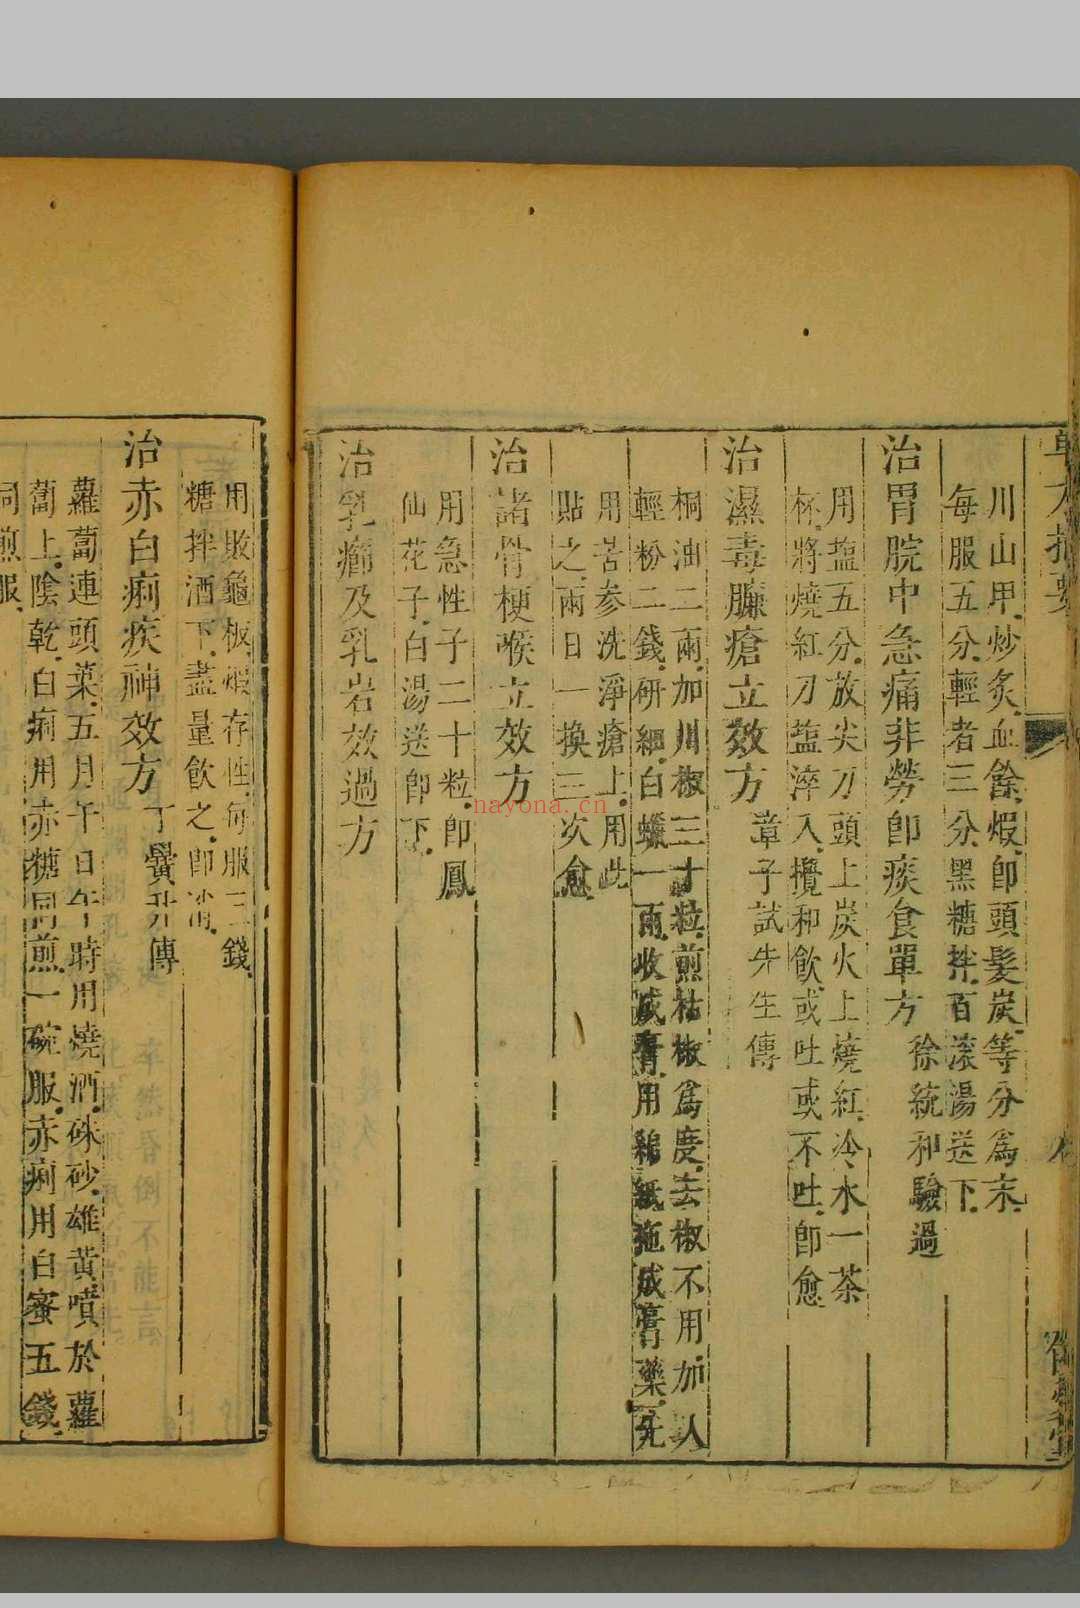 川山甲炒炙血餘煆卽頭髮炭等分爲末
每服五分輕者三分黑糖拌百滾湯送下
治胃脘中急痛非勞卽痰食單方 徐統和驗過
用塩五分放尖刀頭上炭火上燒紅冷水一茶
杯將燒紅刀塩淬入攪和飮或吐或不吐卽愈
治濕毒臁瘡立效方 章子試先生傳
桐油二兩加川椒三十粒煎枯椒爲度去椒不用加入
輕粉二錢研細白蠟一兩收成膏用綿紙拖成膏藥先
用苦參洗淨瘡上用此
貼之兩日一換三次愈
治諸骨梗喉立效方
用急性子二十粒卽鳳
仙花子白湯送卽下
治乳癤及乳岩效過方
用敗龜板煆存性每服三錢
糖拌酒下盡量飮之卽消
治赤白痢疾神效方 丁 升傳
蘿蔔連頭菜五月午日午時用燒酒硃砂雄黃噴於蘿
蔔上陰乾白痢用赤糖同煎一碗服赤痢用白蜜五錢
同煎服
nayona.cn